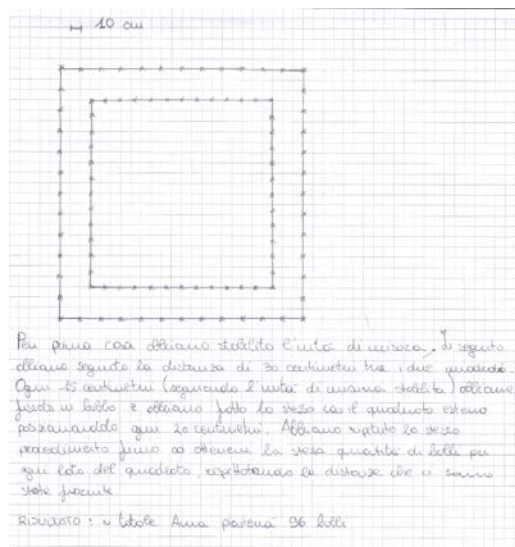 10 cm
Per prima cosa abbiamo stabilito l'unità di misura. Di seguito
abbiamo seguito la distanza di 30 centimetri tra i due quadrati.
Ogni 15 centimetri (seguendo l'unità di misura stabilita) abbiamo
un bulbo e abbiamo fatto lo stesso con il quadrato esterno
posizionandolo ogni 20 centimetri. Abbiamo ripetuto lo stesso
procedimento fino ad ottenere la stessa quantità di bulbi per
ogni lato del quadrato, rispettando le distanze che ci sono
state fornite
RISULTATO: in totale Anna pianterà 96 bulbi